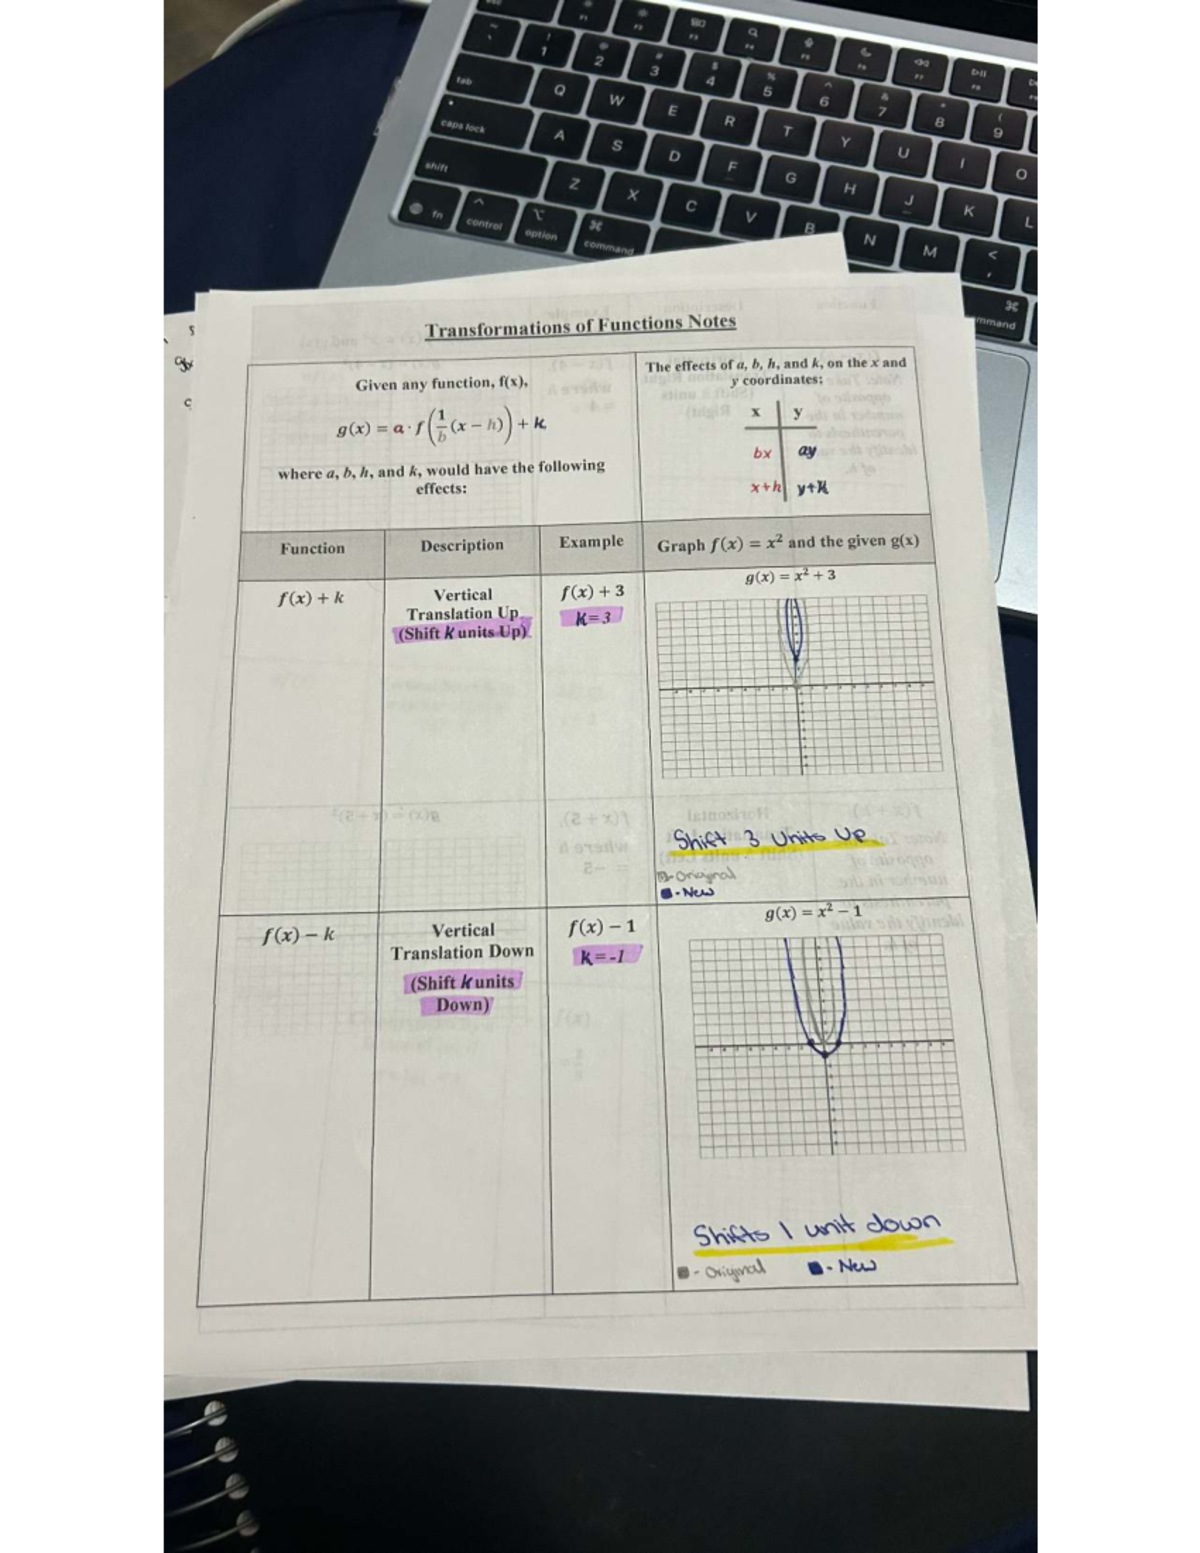 ! 1
2
# 3
$ 4
% 5
^ 6
& 7
* 8
( 9
tab
Q W E R T Y U I O
caps lock
A S D F G H J K L
shift
Z X C V B N M <
,
fn
control
option
⌘
command
⌘
Transformations of Functions Notes
Given any function, f(x),
g(x) = a · f(1/b (x − h)) + k
where a, b, h, and k, would have the following
effects:
The effects of a, b, h, and k, on the x and
y coordinates:
x y
bx ay
x+h y+k
Function Description Example Graph f(x) = x² and the given g(x)
f(x) + k
Vertical
Translation Up
(Shift k units Up)
f(x) + 3
k=3
g(x) = x² + 3
Shift 3 Units Up
- Original
- New
f(x) − k
Vertical
Translation Down
(Shift k units
Down)
f(x) − 1
k=-1
g(x) = x² − 1
Shifts 1 unit down
- Original - New